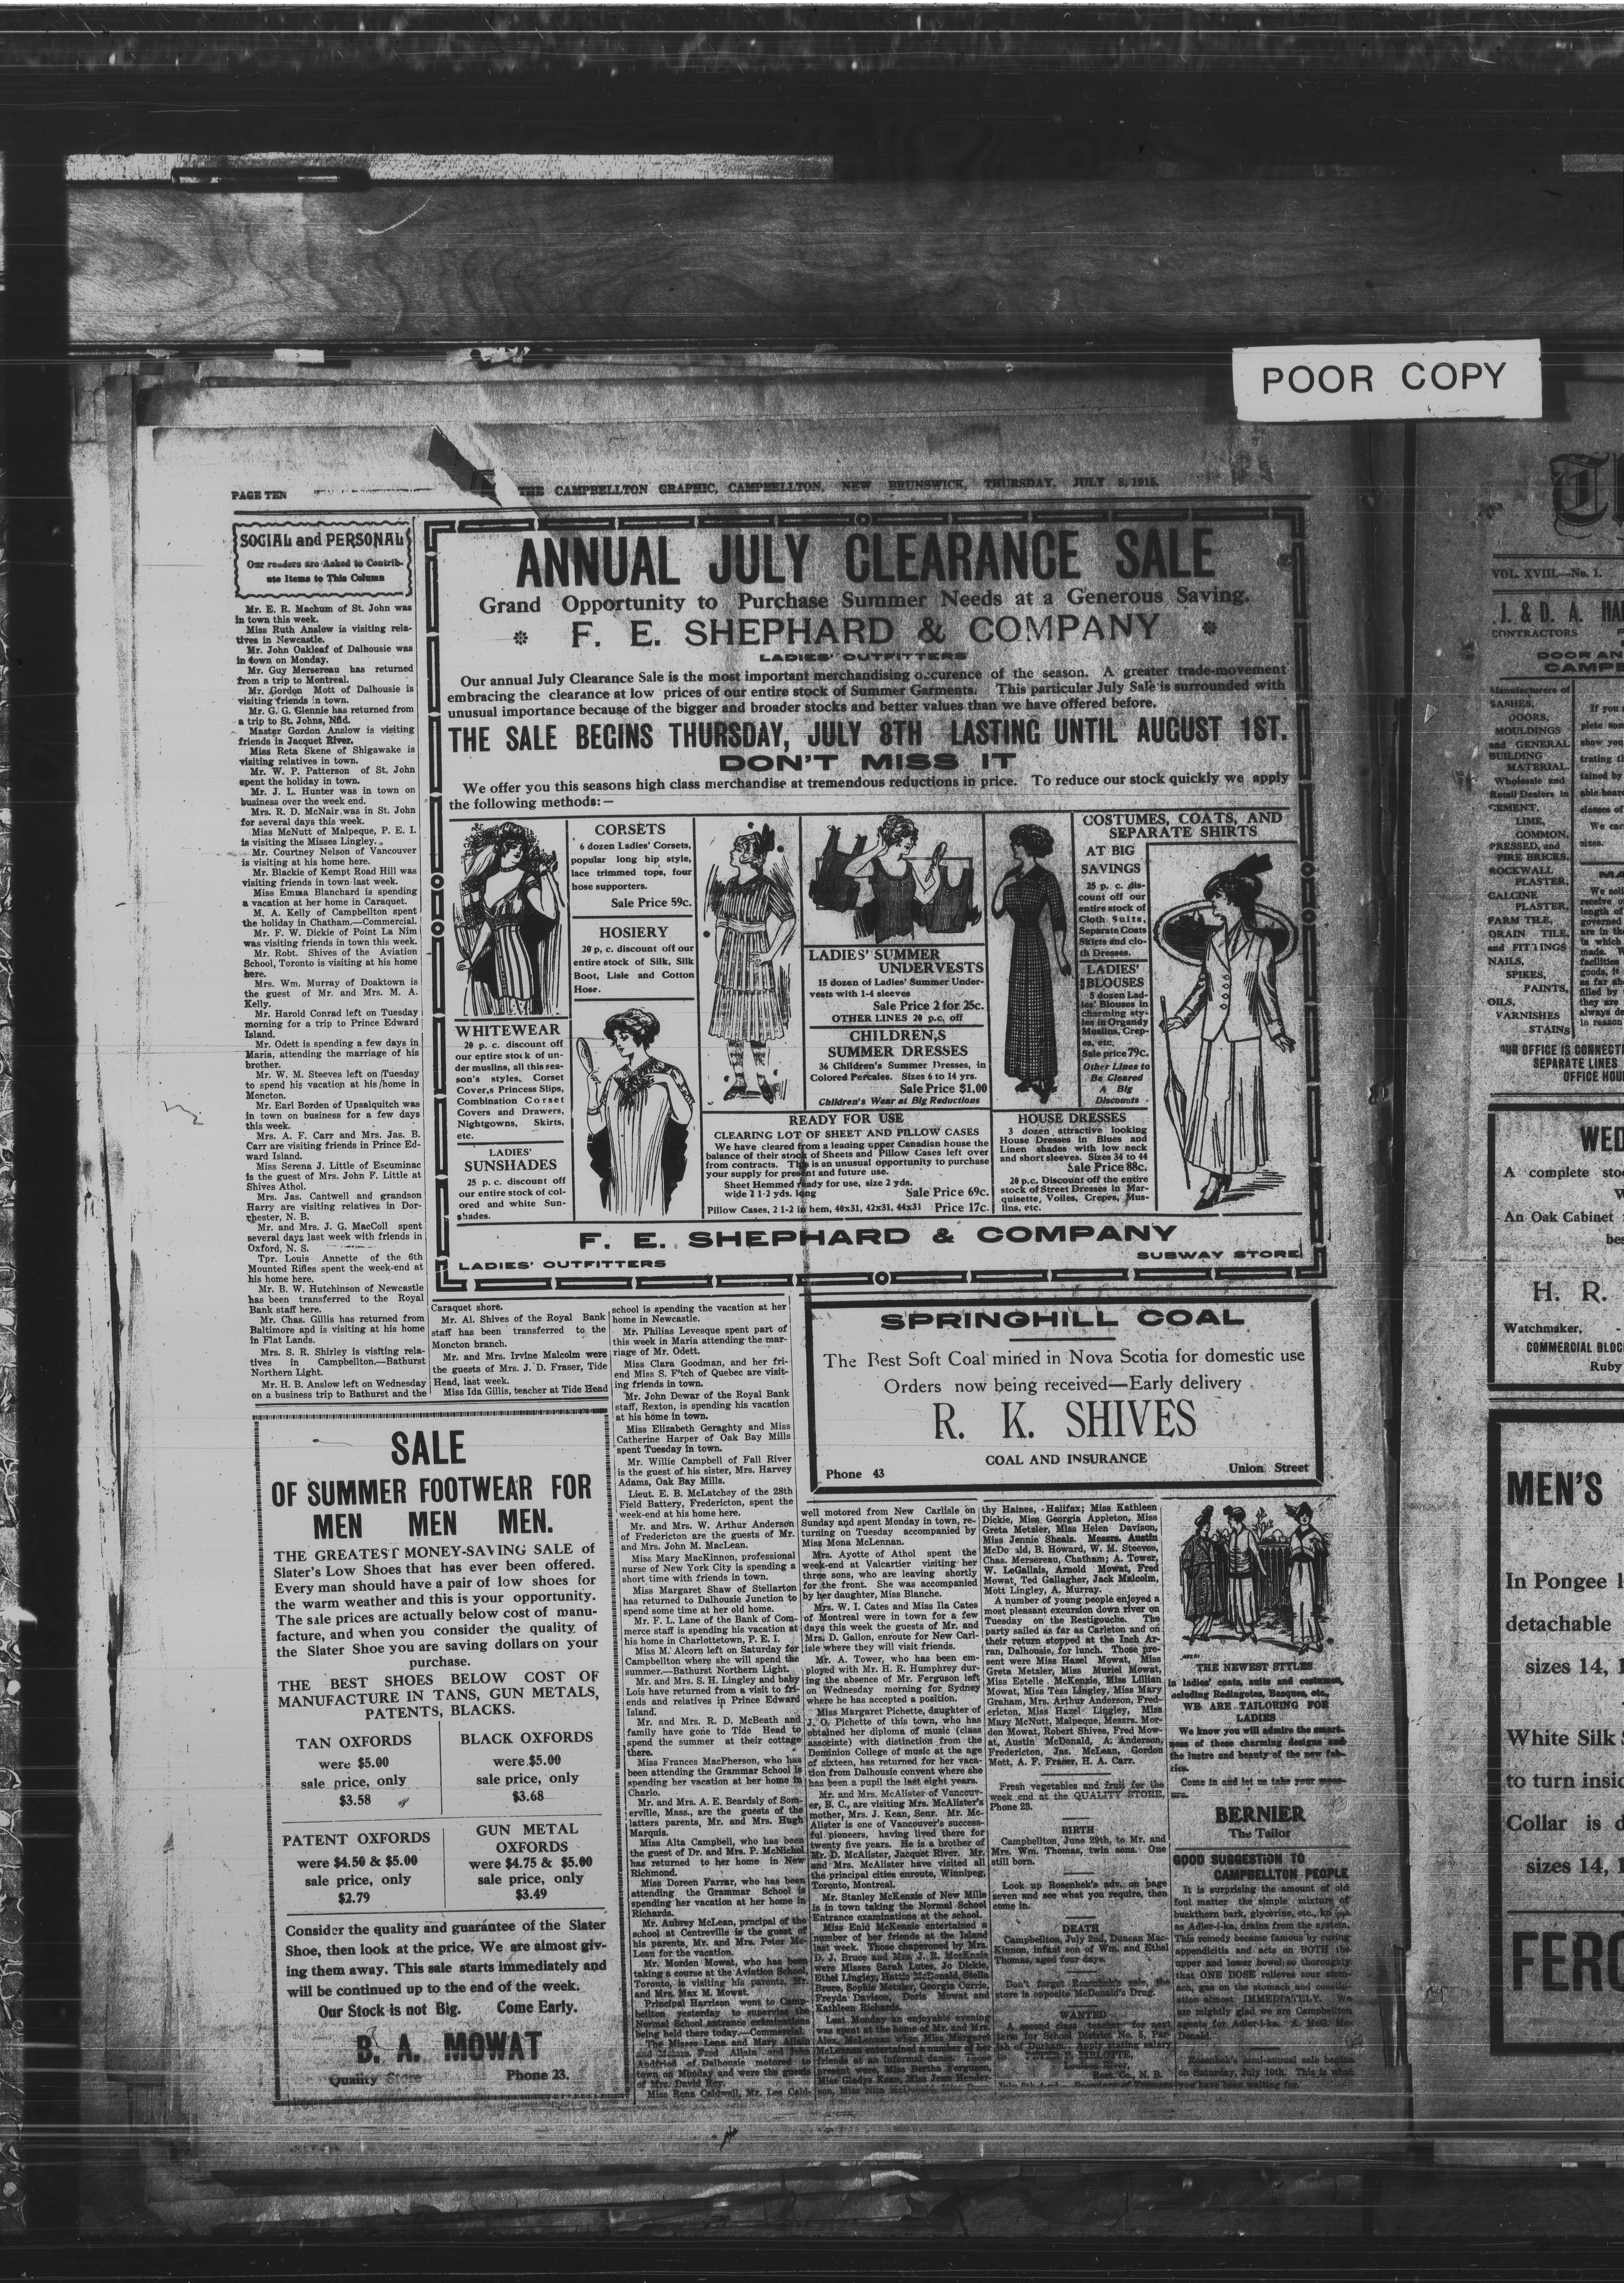 POOR COPY
PAGE TEN
THE CAMPBELLTON GRAPHIC, CAMPBELLTON, NEW BRUNSWICK, THURSDAY, JULY 8, 1915.
SOCIAL and PERSONAL
Our readers are Asked to Contrib-
ute Items to This Column
Mr. E. R. Machum of St. John was
in town this week.
Miss Ruth Anslow is visiting rela-
tives in Newcastle.
Mr. John Oakleaf of Dalhousie was
in town on Monday.
Mr. Guy Mersereau has returned
from a trip to Montreal.
Mr. Gordon Mott of Dalhousie is
visiting friends in town.
Mr. G. G. Glennie has returned from
a trip to St. Johns, Nfld.
Master Gordon Anslow is visiting
friends in Jacquet River.
Miss Reta Skene of Shigawake is
visiting relatives in town.
Mr. W. P. Patterson of St. John
spent the holiday in town.
Mr. J. L. Hunter was in town on
business over the week end.
Mrs. R. D. McNair was in St. John
for several days this week.
Miss McNutt of Malpeque, P. E. I.
is visiting the Misses Lingley.
Mr. Courtney Nelson of Vancouver
is visiting at his home here.
Mr. Blackie of Kempt Road Hill was
visiting friends in town last week.
Miss Emma Blanchard is spending
a vacation at her home in Caraquet.
M. A. Kelly of Campbellton spent
the holiday in Chatham.—Commercial.
Mr. F. W. Dickie of Point La Nim
was visiting friends in town this week.
Mr. Robt. Shives of the Aviation
School, Toronto is visiting at his home
here.
Mrs. Wm. Murray of Doaktown is
the guest of Mr. and Mrs. M. A.
Kelly.
Mr. Harold Conrad left on Tuesday
morning for a trip to Prince Edward
Island.
Mr. Odett is spending a few days in
Maria, attending the marriage of his
brother.
Mr. W. M. Steeves left on Tuesday
to spend his vacation at his home in
Moncton.
Mr. Earl Borden of Upsalquitch was
in town on business for a few days
this week.
Mrs. A. F. Carr and Mrs. Jas. B.
Carr are visiting friends in Prince Ed-
ward Island.
Miss Serena J. Little of Escuminac
is the guest of Mrs. John F. Little at
Shives Athol.
Mrs. Jas. Cantwell and grandson
Harry are visiting relatives in Dor-
chester, N. B.
Mr. and Mrs. J. G. MacColl spent
several days last week with friends in
Oxford, N. S.
Tpr. Louis Annette of the 6th
Mounted Rifles spent the week-end at
his home here.
Mr. B. W. Hutchinson of Newcastle
has been transferred to the Royal
Bank staff here.
Mr. Chas. Gillis has returned from
Baltimore and is visiting at his home
in Flat Lands.
Mrs. S. R. Shirley is visiting rela-
tives in Campbellton.—Bathurst
Northern Light.
Mr. H. B. Anslow left on Wednesday
on a business trip to Bathurst and the
ANNUAL JULY CLEARANCE SALE
Grand Opportunity to Purchase Summer Needs at a Generous Saving.
F. E. SHEPHARD & COMPANY
LADIES' OUTFITTERS
Our annual July Clearance Sale is the most important merchandising occurence of the season. A greater trade-movement
embracing the clearance at low prices of our entire stock of Summer Garments. This particular July Sale is surrounded with
unusual importance because of the bigger and broader stocks and better values than we have offered before.
THE SALE BEGINS THURSDAY, JULY 8TH LASTING UNTIL AUGUST 1ST.
DON'T MISS IT
We offer you this seasons high class merchandise at tremendous reductions in price. To reduce our stock quickly we apply
the following methods:—
WHITEWEAR
20 p. c. discount off
our entire stock of un-
der muslins, all this sea-
son's styles, Corset
Cover,s Princess Slips,
Combination Corset
Covers and Drawers,
Nightgowns, Skirts,
etc.
LADIES'
SUNSHADES
25 p. c. discount off
our entire stock of col-
ored and white Sun-
shades.
CORSETS
6 dozen Ladies' Corsets,
popular long hip style,
lace trimmed tops, four
hose supporters.
Sale Price 59c.
HOSIERY
20 p, c. discount off our
entire stock of Silk, Silk
Boot, Lisle and Cotton
Hose.
LADIES' SUMMER
UNDERVESTS
15 dozen of Ladies' Summer Under-
vests with 1-4 sleeves
Sale Price 2 for 25c.
OTHER LINES 20 p.c. off
CHILDREN,S
SUMMER DRESSES
36 Children's Summer Dresses, in
Colored Percales. Sizes 6 to 14 yrs.
Sale Price $1.00
Children's Wear at Big Reductions
READY FOR USE
CLEARING LOT OF SHEET AND PILLOW CASES
We have cleared from a leading upper Canadian house the
balance of their stock of Sheets and Pillow Cases left over
from contracts. This is an unusual opportunity to purchase
your supply for present and future use.
Sheet Hemmed ready for use, size 2 yds.
wide 2 1-2 yds. long Sale Price 69c.
Pillow Cases, 2 1-2 in hem, 40x31, 42x31, 44x31 Price 17c.
COSTUMES, COATS, AND
SEPARATE SHIRTS
AT BIG
SAVINGS
25 p. c. dis-
count off our
entire stock of
Cloth Suits,
Separate Coats
Skirts and clo-
th Dresses.
LADIES'
BLOUSES
5 dozen Lad-
ies' Blouses in
charming sty-
les in Organdy
Muslins, Crep-
es, etc.
Sale price 79c.
Other Lines to
Be Cleared
A Big
Discounts
HOUSE DRESSES
3 dozen attractive looking
House Dresses in Blues and
Linen shades with low neck
and short sleeves. Sizes 34 to 44
Sale Price 88c.
20 p.c. Discount off the entire
stock of Street Dresses in Mar-
quisette, Voiles, Crepes, Mus-
lins, etc.
F. E. SHEPHARD & COMPANY
LADIES' OUTFITTERS
SUBWAY STORE
Caraquet shore.
Mr. Al. Shives of the Royal Bank
staff has been transferred to the
Moncton branch.
Mr. and Mrs. Irvine Malcolm were
the guests of Mrs. J. D. Fraser, Tide
Head, last week.
Miss Ida Gillis, teacher at Tide Head
SALE
OF SUMMER FOOTWEAR FOR
MEN MEN MEN.
THE GREATEST MONEY-SAVING SALE of
Slater's Low Shoes that has ever been offered.
Every man should have a pair of low shoes for
the warm weather and this is your opportunity.
The sale prices are actually below cost of manu-
facture, and when you consider the quality of
the Slater Shoe you are saving dollars on your
purchase.
THE BEST SHOES BELOW COST OF
MANUFACTURE IN TANS, GUN METALS,
PATENTS, BLACKS.
TAN OXFORDS
were $5.00
sale price, only
$3.58
BLACK OXFORDS
were $5.00
sale price, only
$3.68
PATENT OXFORDS
were $4.50 & $5.00
sale price, only
$2.79
GUN METAL
OXFORDS
were $4.75 & $5.00
sale price, only
$3.49
Consider the quality and guarantee of the Slater
Shoe, then look at the price. We are almost giv-
ing them away. This sale starts immediately and
will be continued up to the end of the week.
Our Stock is not Big. Come Early.
B. A. MOWAT
Quality Store Phone 23.
school is spending the vacation at her
home in Newcastle.
Mr. Philias Levesque spent part of
this week in Maria attending the mar-
riage of Mr. Odett.
Miss Clara Goodman, and her fri-
end Miss S. F'tch of Quebec are visit-
ing friends in town.
Mr. John Dewar of the Royal Bank
staff, Rexton, is spending his vacation
at his home in town.
Miss Elizabeth Geraghty and Miss
Catherine Harper of Oak Bay Mills
spent Tuesday in town.
Mr. Willie Campbell of Fall River
is the guest of his sister, Mrs. Harvey
Adams, Oak Bay Mills.
Lieut. E. B. McLatchey of the 28th
Field Battery, Fredericton, spent the
week-end at his home here.
Mr. and Mrs. W. Arthur Anderson
of Fredericton are the guests of Mr.
and Mrs. John M. MacLean.
Miss Mary MacKinnon, professional
nurse of New York City is spending a
short time with friends in town.
Miss Margaret Shaw of Stellarton
has returned to Dalhousie Junction to
spend some time at her old home.
Mr. F. L. Lane of the Bank of Com-
merce staff is spending his vacation at
his home in Charlottetown, P. E. I.
Miss M. Alcorn left on Saturday for
Campbellton where she will spend the
summer.—Bathurst Northern Light.
Mr. and Mrs. S. H. Lingley and baby
Lois have returned from a visit to fri-
ends and relatives in Prince Edward
Island.
Mr. and Mrs. R. D. McBeath and
family have gone to Tide Head to
spend the summer at their cottage
there.
Miss Frances MacPherson, who has
been attending the Grammar School is
spending her vacation at her home in
Charlo.
Mr. and Mrs. A. E. Beardsly of Som-
erville, Mass., are the guests of the
latters parents, Mr. and Mrs. Hugh
Marquis.
Miss Alta Campbell, who has been
the guest of Dr. and Mrs. P. McNichol
has returned to her home in New
Richmond.
Miss Doreen Farrar, who has been
attending the Grammar School is
spending her vacation at her home in
Richards.
Mr. Aubrey McLean, prncipal of the
school at Centreville is the guest of
his parents, Mr. and Mrs. Peter Mc-
Lean for the vacation.
Mr. Morden Mowat, who has been
taking a course at the Aviation School,
Toronto, is visiting his parents, Mr.
and Mrs. Max M. Mowat.
Principal Harrison went to Camp-
bellton yesterday to supervise the
Normal School entrance examinations
being held there today.—Commercial.
The Misses Lena and Mary Allain
and Messrs Fred Allain and John
Andfried of Dalhousie motored to
town on Monday and were the guests
of Mrs. David Roy.
Miss Rena Caldwell, Mr. Lee Cald-
SPRINGHILL COAL
The Best Soft Coal mined in Nova Scotia for domestic use
Orders now being received—Early delivery
R. K. SHIVES
COAL AND INSURANCE
Phone 43 Union Street
well motored from New Carlisle on
Sunday and spent Monday in town, re-
turning on Tuesday accompanied by
Miss Mona McLennan.
Mrs. Ayotte of Athol spent the
week-end at Valcartier visiting her
three sons, who are leaving shortly
for the front. She was accompanied
by her daughter, Miss Blanche.
Mrs. W. I. Cates and Miss Ila Cates
of Montreal were in town for a few
days this week the guests of Mr. and
Mrs. D. Gallon, enroute for New Carl-
isle where they will visit friends.
Mr. A. Tower, who has been em-
ployed with Mr. H. R. Humphrey dur-
ing the absence of Mr. Ferguson left
on Wednesday morning for Sydney
where he has accepted a position.
Miss Margaret Pichette, daughter of
J. O. Pichette of this town, who has
obtained her diploma of music (class
associate) with distinction from the
Dominion College of music at the age
of sixteen, has returned for her vaca-
tion from Dalhousie convent where she
has been a pupil the last eight years.
Mr. and Mrs. McAlister of Vancouv-
er, B. C., are visiting Mrs. McAlister's
mother, Mrs. J. Kean, Senr. Mr. Mc-
Alister is one of Vancouver's success-
ful pioneers, having lived there for
twenty five years. He is a brother of
Mr. D. McAlister, Jacquet River. Mr.
and Mrs. McAlister have visited all
the principal cities enroute, Winnipeg,
Toronto, Montreal.
Mr. Stanley McKenzie of New Mills
is in town taking the Normal School
Entrance examinations at the school.
Miss Enid McKenzie entertained a
number of her friends at the Island
last week. Those chaperoned by Mrs.
D. J. Bruce and Mrs. J. R. McKenzie
were Misses Sarah Lutes, Jo Dickie,
Ethel Lingley, Hattie McDonald, Stella
Bruce, Sophie Metzler, Georgia Currie,
Freyda Davison, Doris Mowat and
Kathleen Richards.
Last Monday an enjoyable evening
was spent at the home of Mr. and Mrs.
Alex. McLennan when Miss Margaret
McLennan entertained a number of her
friends at an informal dance. Those
present were, Miss Bertha Ferguson,
Miss Gladys Kean, Miss Jean Hender-
thy Haines, Halifax; Miss Kathleen
Dickie, Miss Georgia Appleton, Miss
Greta Metzler, Miss Helen Davison,
Miss Jennie Sheals. Messrs. Austin
McDo ald, B. Howard, W. M. Steeves,
Chas. Mersereau, Chatham; A. Tower,
W. LeGallais, Arnold Mowat, Fred
Mowat, Ted Gallagher, Jack Malcolm,
Mott Lingley, A. Murray.
A number of young people enjoyed a
most pleasant excursion down river on
Tuesday on the Restigouche. The
party sailed as far as Carleton and on
their return stopped at the Inch Ar-
ran, Dalhousie, for lunch. Those pre-
sent were Miss Hazel Mowat, Miss
Greta Metzler, Miss Muriel Mowat,
Miss Estelle McKenzie, Miss Lillian
Mowat, Miss Tess Lingley, Miss Mary
Graham, Mrs. Arthur Anderson, Fred-
ericton, Miss Hazel Lingley, Miss
Mary McNutt, Malpeque, Messrs. Mor-
den Mowat, Robert Shives, Fred Mow-
at, Austin McDonald, A. Anderson,
Fredericton, Jas. McLean, Gordon
Mott, A. F. Fraser, H. A. Carr.
Fresh vegetables and fruit for the
week end at the QUALITY STORE,
Phone 23.
BIRTH
Campbellton, June 29th, to Mr. and
Mrs. Wm. Thomas, twin sons. One
still born.
Look up Rosenhek's adv. on page
seven and see what you require, then
come in.
DEATH
Campbellton, July 2nd, Duncan Mac-
Kinnon, infant son of Wm. and Ethel
Thomas, aged four days.
Don't forget Rosenhek's sale, the
store is opposite McDonald's Drug.
WANTED
A second class teacher for next
term for School District No. 5, Par-
ish of Durham. Apply stating salary
Rest. Co., N. B.
THE NEWEST STYLES
in ladies' coats, suits and costumes,
including Redingotes, Basques, etc.,
WE ARE TAILORING FOR
LADIES
We know you will admire the smart-
ness of these charming designs and
the lustre and beauty of the new fab-
rics.
Come in and let us take your meas-
ure.
BERNIER
The Tailor
GOOD SUGGESTION TO
CAMPBELLTON PEOPLE
It is surprising the amount of old
foul matter the simple mixture of
buckthorn bark, glycerine, etc., known
as Adler-i-ka, drains from the system.
This remedy became famous by curing
appendicitis and acts on BOTH the
upper and lower bowel so thoroughly
that ONE DOSE relieves sour stom-
ach, gas on the stomach and constip-
ation almost IMMEDIATELY. We
are mightly glad we are Campbellton
agents for Adler-i-ka. A. McG. Mc-
Donald.
Rosenhek's semi-annual sale begins
on Saturday, July 10th. This is what
you have been waiting for.
VOL. XVIII.—No. 1.
J. & D. A.
CONTRACTORS
DOOR AN
CAMPB
Manufacturers of
SASHES,
DOORS,
MOULDINGS
and GENERAL
BUILDING
MATERIAL.
Wholesale and
Retail Dealers in
CEMENT,
LIME,
COMMON,
PRESSED, and
FIRE BRICKS,
ROCKWALL
PLASTER,
CALCINE
PLASTER,
FARM TILE,
DRAIN TILE,
and FITTINGS
NAILS,
SPIKES,
PAINTS,
OILS,
VARNISHES
STAINS
OUR OFFICE IS CONNECTI
SEPARATE LINES
OFFICE HOU
WED
A complete sto
An Oak Cabinet
bes
H. R.
Watchmaker,
COMMERCIAL BLOC
Ruby
MEN'S
In Pongee
detachable
sizes 14,
White Silk
to turn insid
Collar is d
sizes 14,
FERG